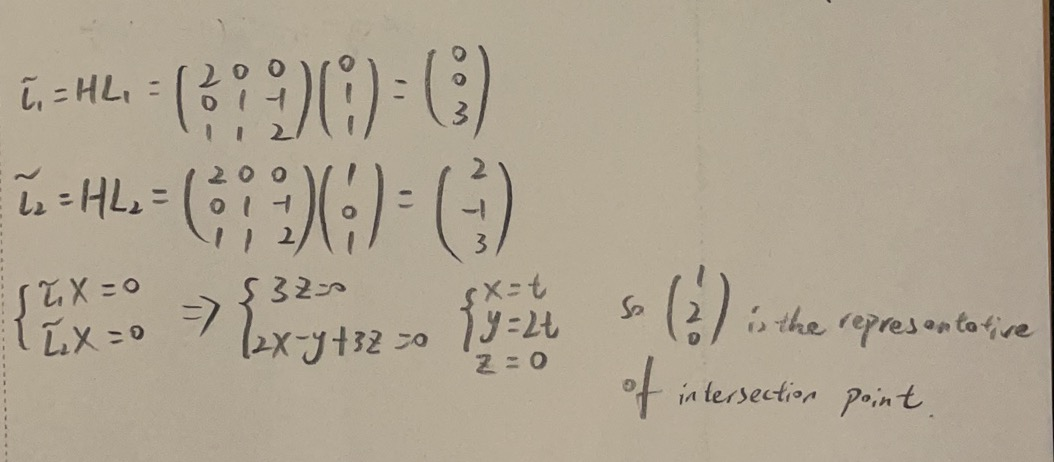 l̃₁ = HL₁ = (2 0 0; 0 1 -1; 1 1 2)(0; 1; 1) = (0; 0; 3)
l̃₂ = HL₂ = (2 0 0; 0 1 -1; 1 1 2)(1; 0; 1) = (2; -1; 3)
{l̃₁X = 0; l̃₂X = 0 ⇒ {3z=0; 2x-y+3z=0 {x=t; y=2t; z=0 so (1; 2; 0) is the representative
of intersection point.